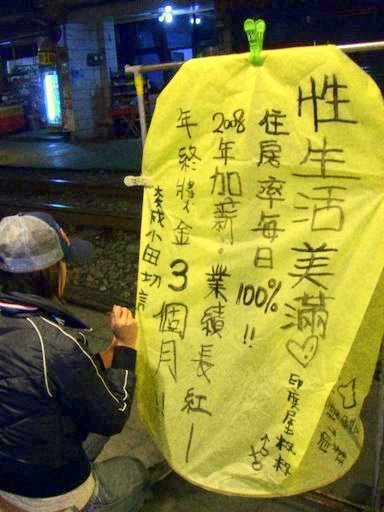 性生活美滿♡
印度屋 叔叔
住房率每日100%!!
2008年加薪。業績長紅!
年終獎金3個月!